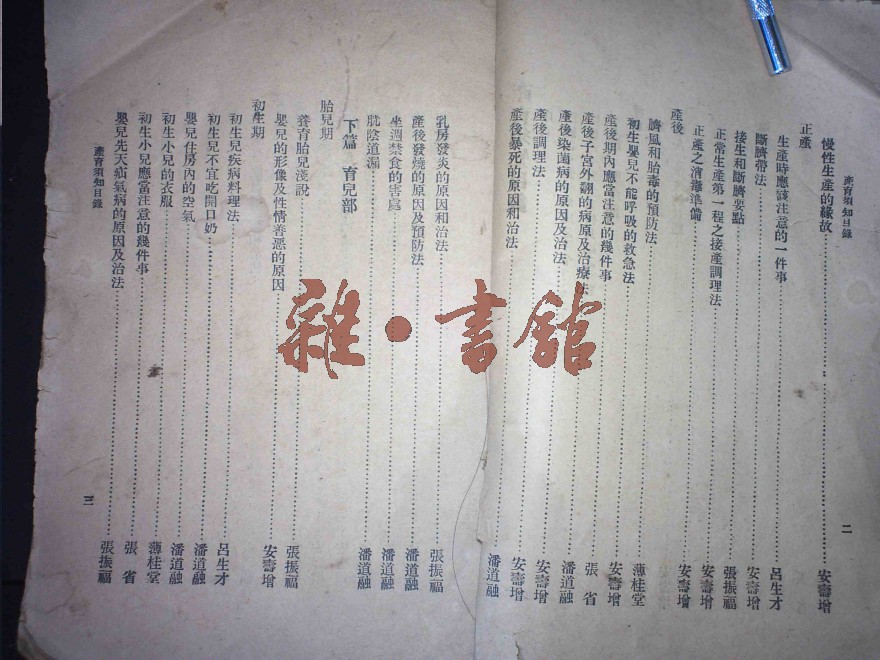 產育須知目錄
二
慢性生產的緣故 安壽增
正產
生產時應該注意的一件事 呂生才
斷臍帶法 安壽增
接生和斷臍要點 張振福
正常生產第一程之接產調理法 安壽增
正產之消毒準備 安壽增
產後
臍風和胎毒的預防法 薄桂堂
初生嬰兒不能呼吸的救急法 安壽增
產後期內應當注意的幾件事 張省
產後子宮外翻的病原及治療法 潘道融
產後染菌病的原因及治法 安壽增
產後調理法 安壽增
產後暴死的原因和治法 潘道融
乳房發炎的原因和治法 張振福
產後發燒的原因及預防法 潘道融
坐週禁食的害處 潘道融
胱陰道漏 潘道融
下篇 育兒部
胎兒期
養育胎兒淺說 張振福
嬰兒的形像及性情善惡的原因 安壽增
初生期
初生兒疾病料理法 呂生才
初生兒不宜吃開口奶 潘道融
嬰兒住房內的空氣 潘道融
初生小兒的衣服 薄桂堂
初生小兒應當注意的幾件事 張省
嬰兒先天疝氣病的原因及治法 張振福
產育須知目錄
三
雜·書館